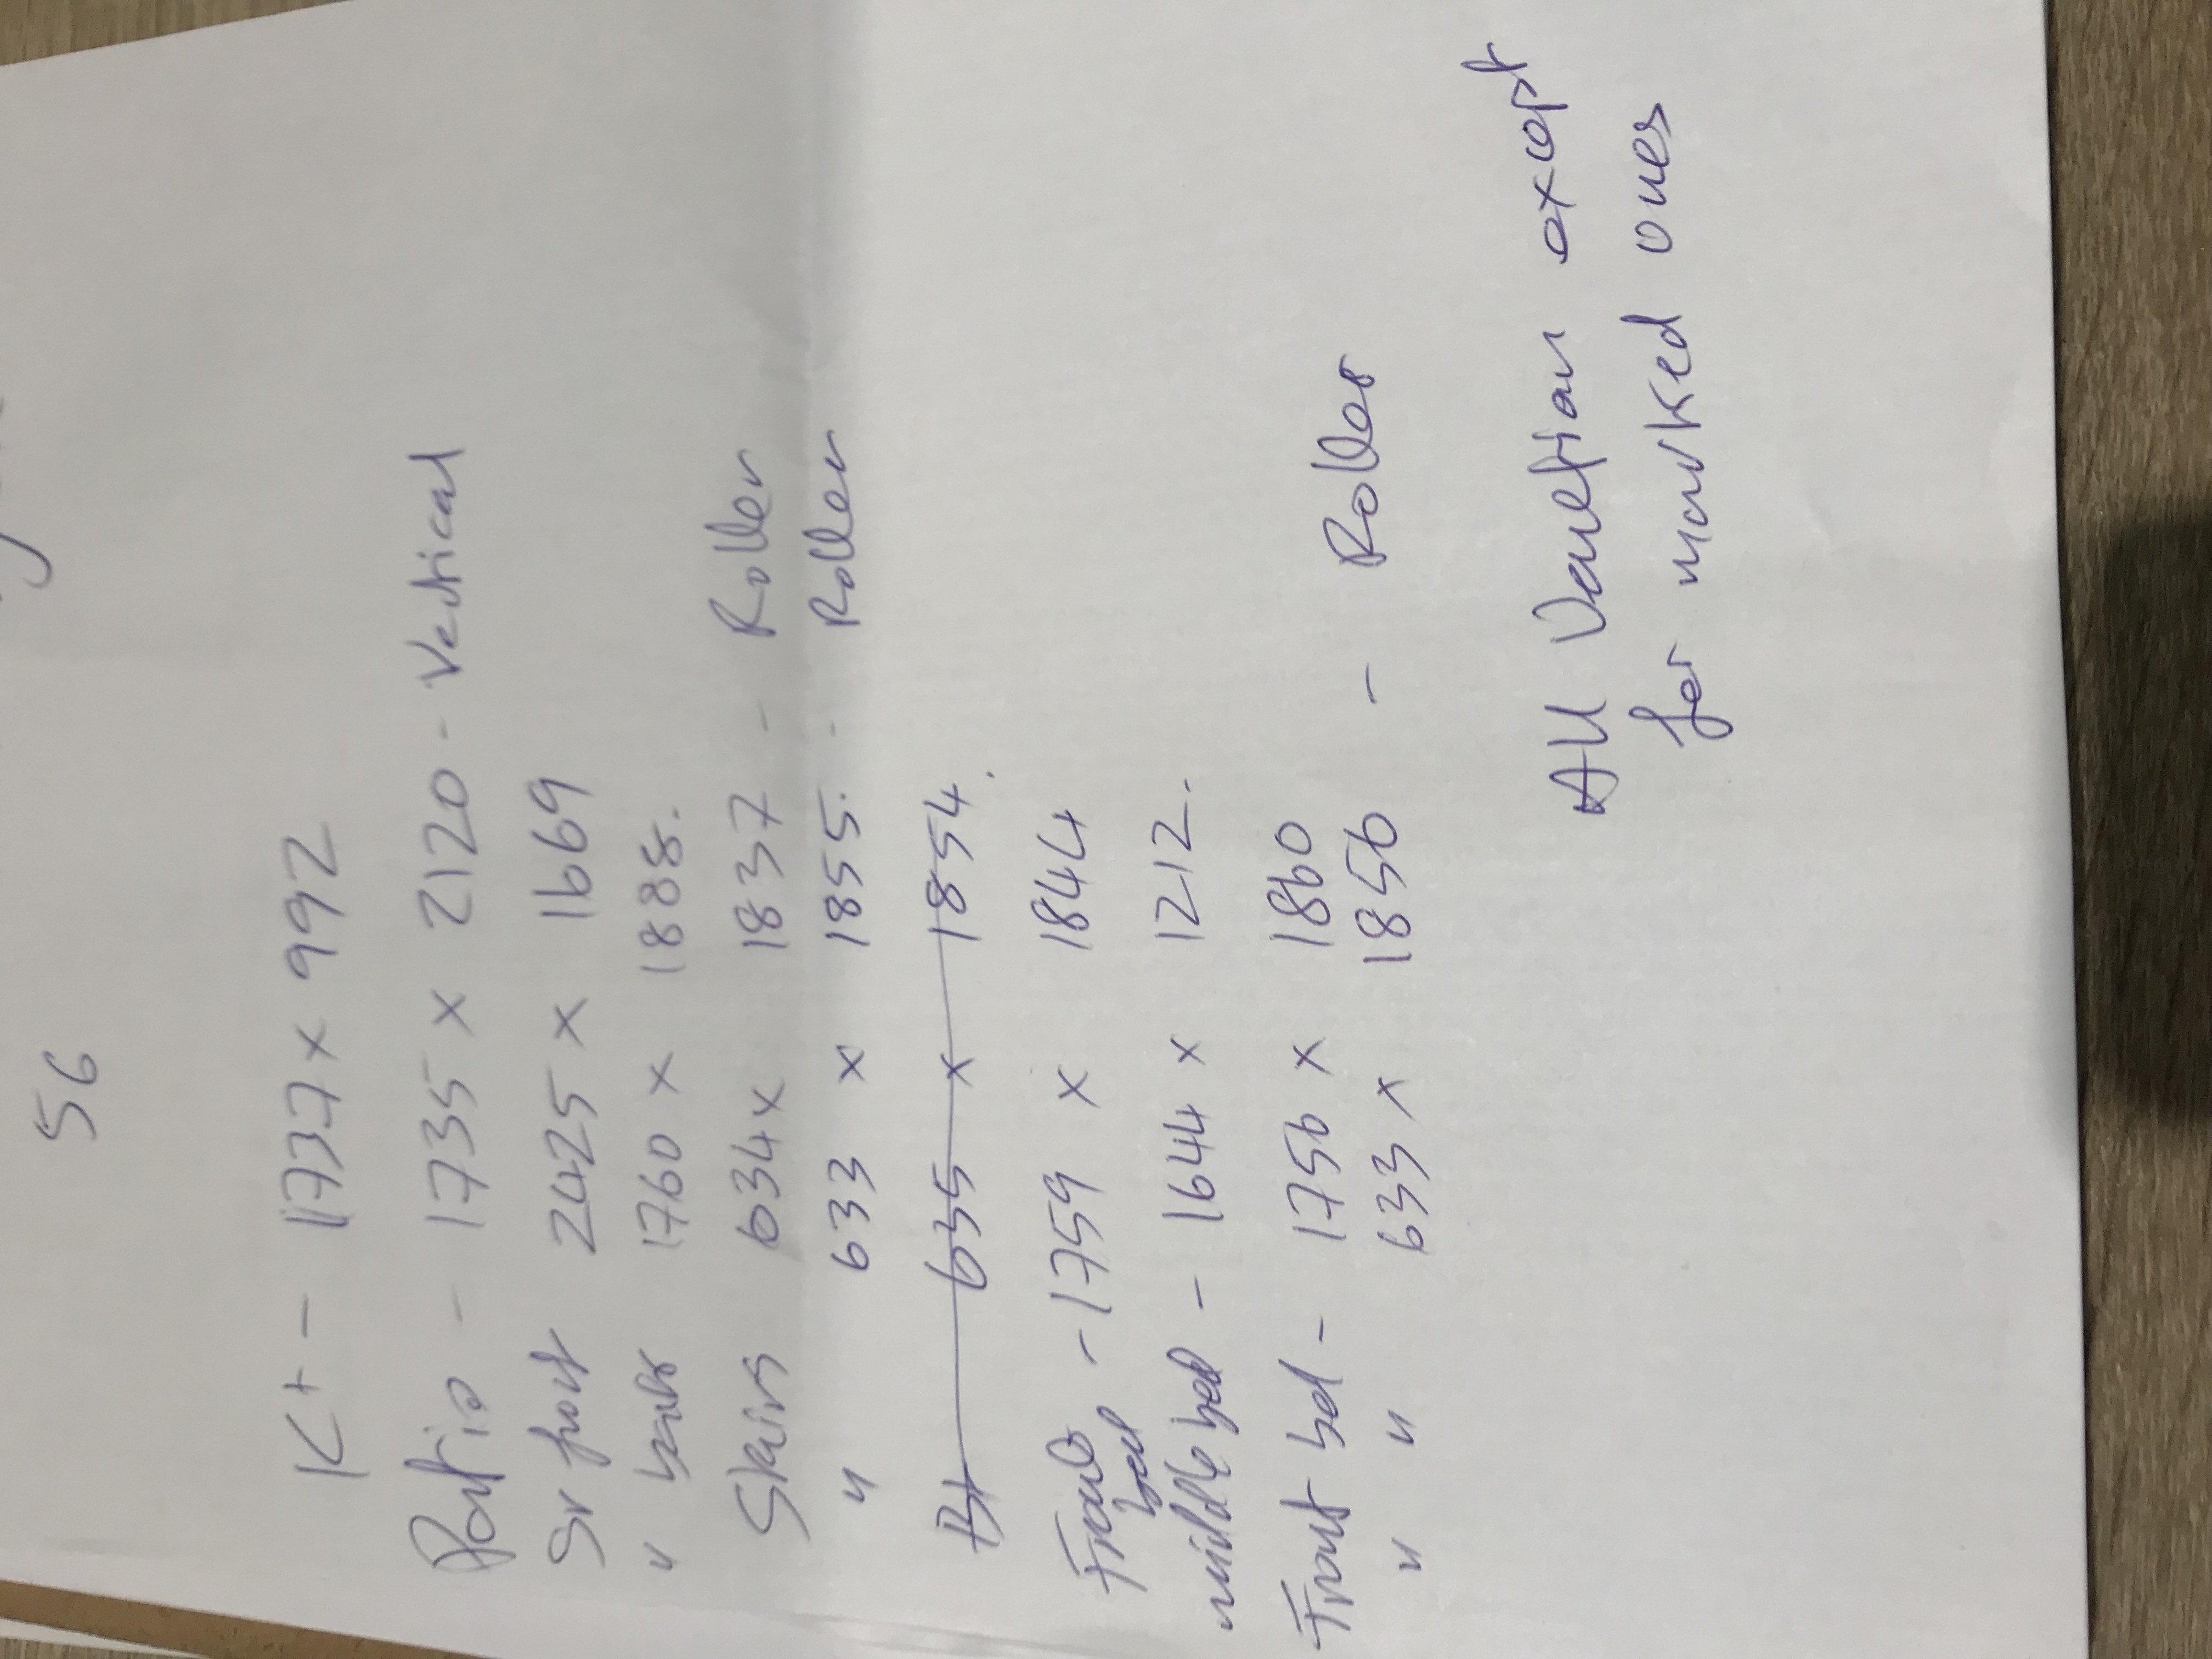 56
Kt - 1737 x 992
Patio - 1735 x 2120 - Vertical
Sr front 2425 x 1669
" back 1760 x 1888.
Stairs 634 x 1837 - Roller
" 633 x 1855. - Roller
Bt 635 x 1854.
Front bed - 1759 x 1844
middle bed - 1644 x 1212.
Front bed - 1756 x 1860
" " 633 x 1856 - Roller
All Venetian except
for marked ones